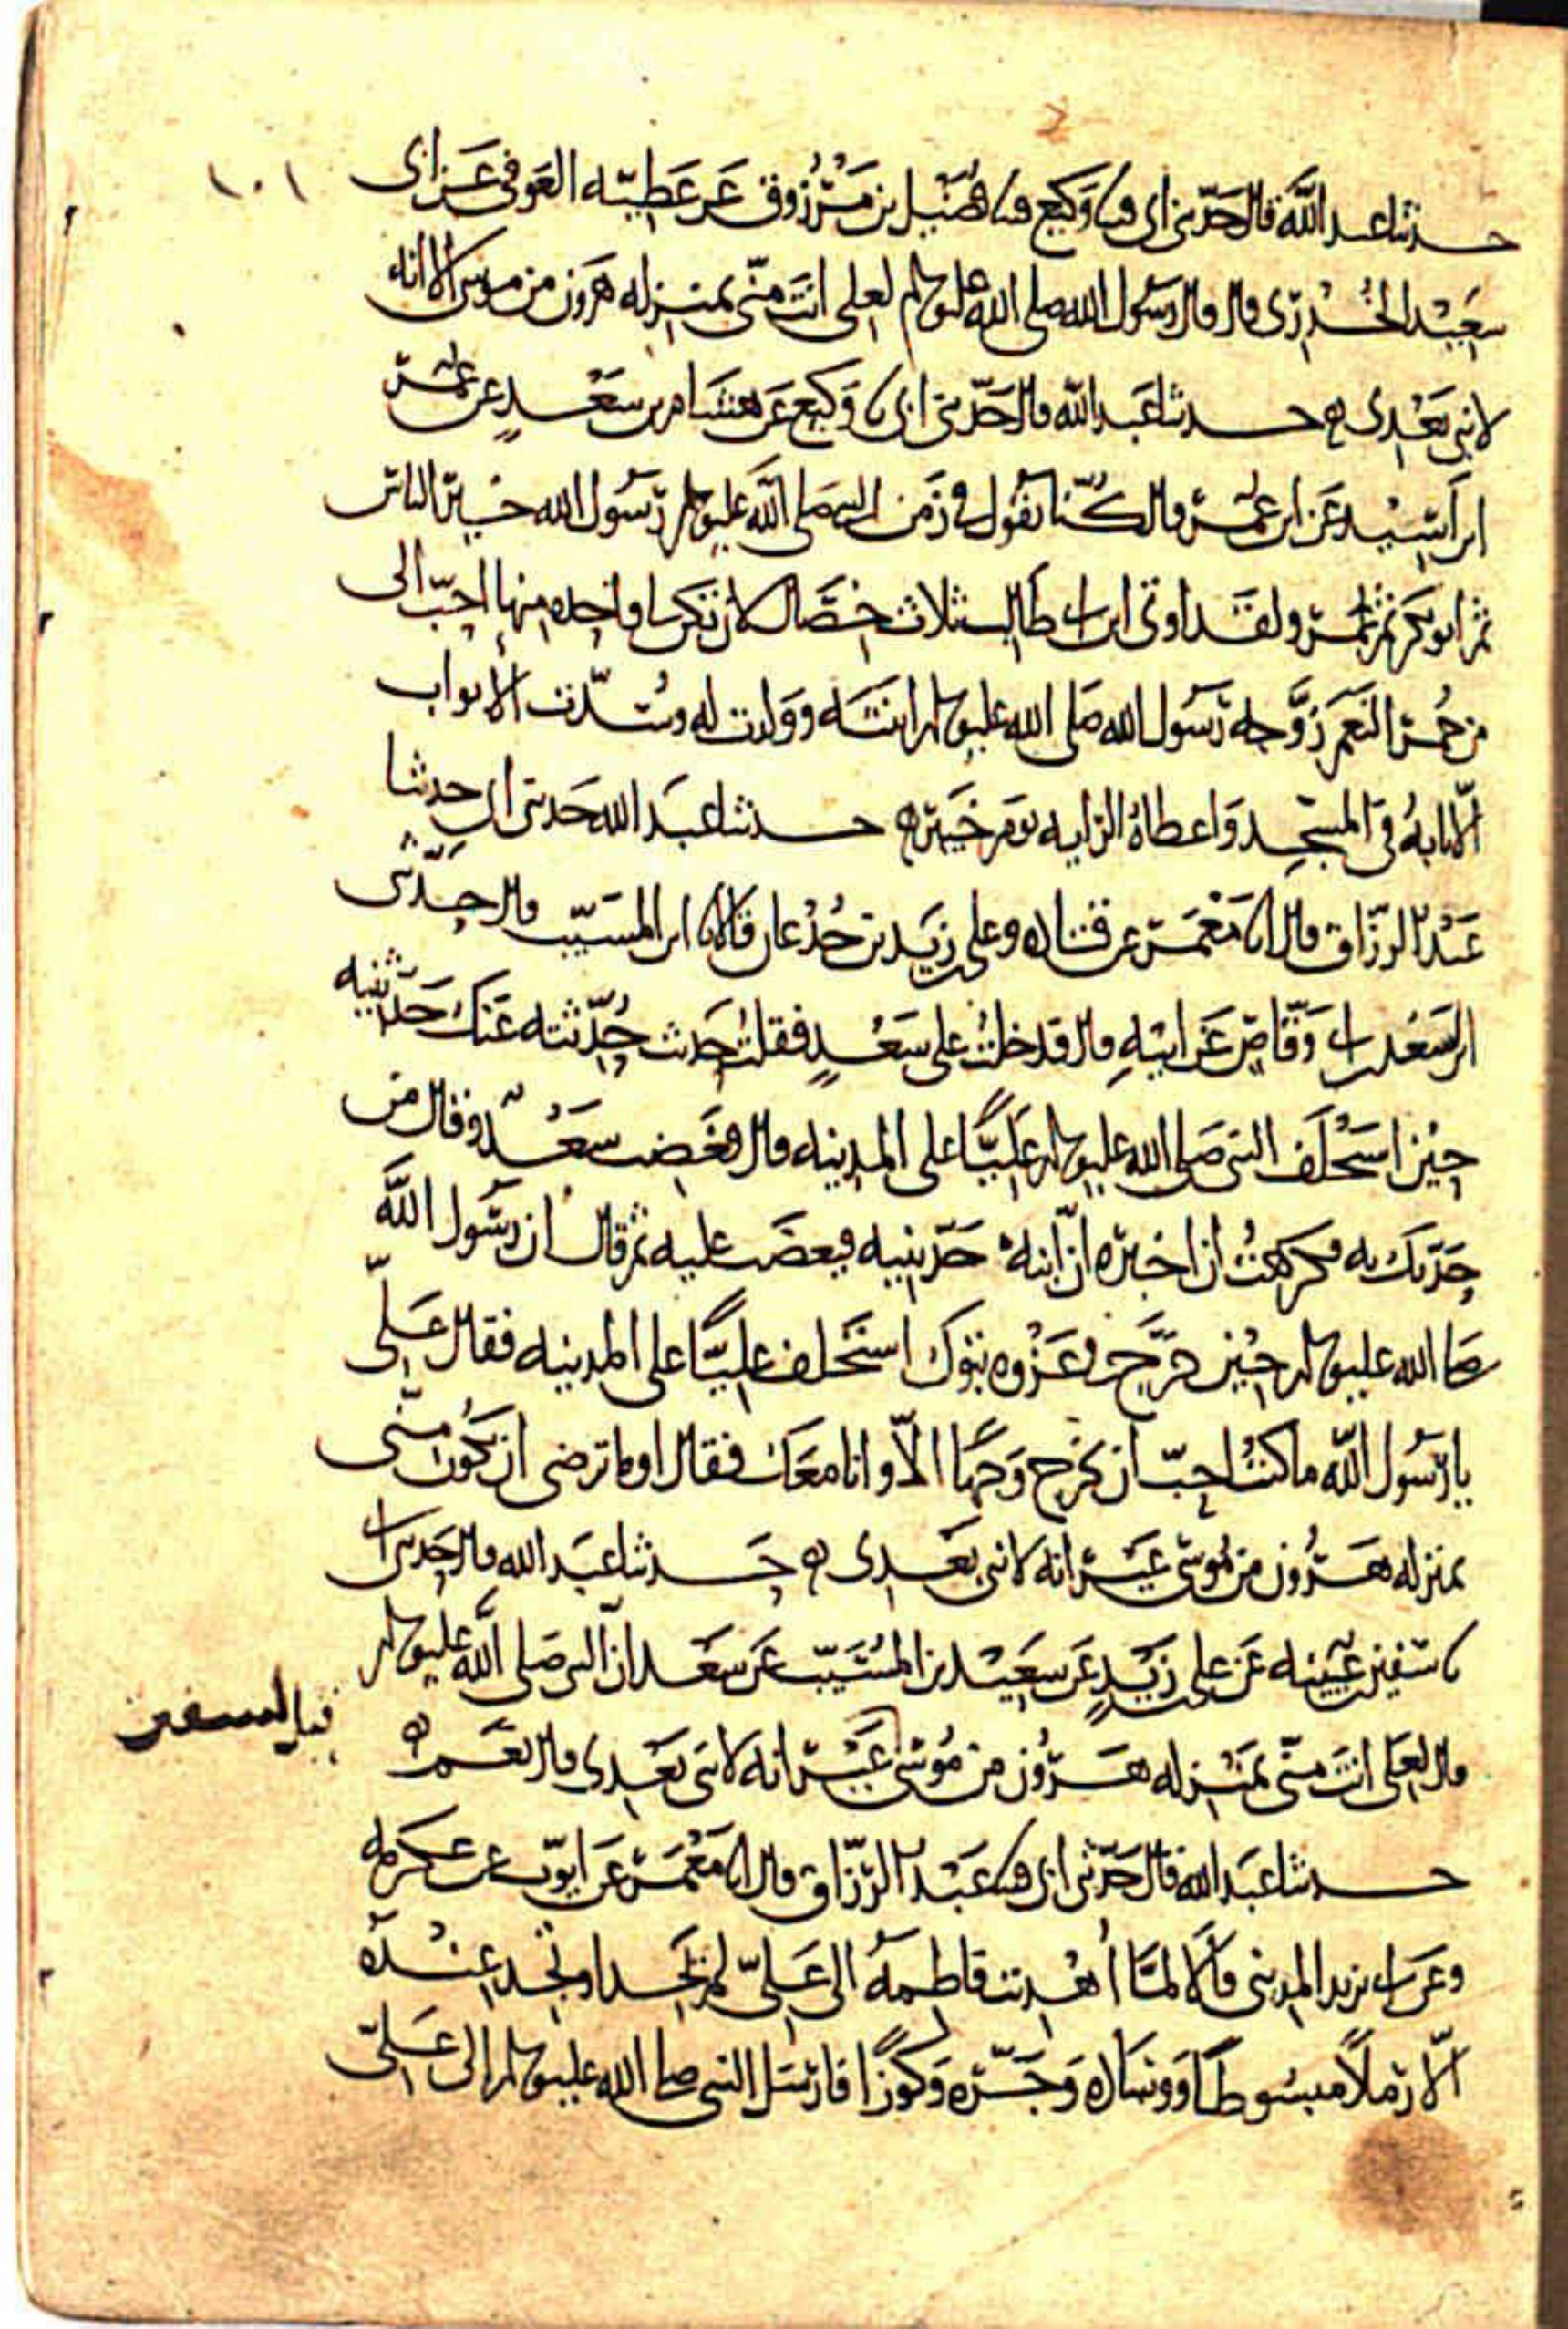 ١٠١
حدثنا عبد الله قال حدثني ابي قثنا وكيع قثنا فضيل بن مرزوق عن عطيه العوفي عن ابي
سعيد الخدري قال قال رسول الله صلى الله عليه وسلم لعلي انت مني بمنزله هرون من موسى الا انه
لا نبي بعدي ه حدثنا عبد الله قال حدثني ابي نا وكيع عن هشام بن سعد عن عمر
ابن اسيد عن ابن عمر قال كنا نقول في زمن النبي صلى الله عليه وسلم رسول الله خير الناس
ثم ابو بكر ثم عمر ولقد اوتي ابن ابي طالب ثلاث خصال لان تكون لي واحده منها احب الي
من حمر النعم زوجه رسول الله صلى الله عليه وسلم ابنته وولدت له وسدت الابواب
الا بابه في المسجد واعطاه الرايه يوم خيبر ه حدثنا عبد الله حدثني ابي حدثنا
عبد الرزاق قال انا معمر عن قتاده وعلي بن زيد بن جدعان قالا نا ابن المسيب قال حدثني
ابن لسعد بن ابي وقاص عن ابيه قال فدخلت على سعد فقلت حديث حدثته عنك حدثنيه
حين استخلف النبي صلى الله عليه وسلم عليا على المدينه قال فغضب سعد وقال من
حدثك به فكرهت ان اخبره ان ابنه حدثنيه فيغضب عليه ثم قال ان رسول الله
صلى الله عليه وسلم حين خرج في غزوه تبوك استخلف عليا على المدينه فقال علي
يا رسول الله ما كنت احب ان تخرج وجها الا وانا معك فقال او ما ترضى ان تكون مني
بمنزله هرون من موسى غير انه لا نبي بعدي ه حدثنا عبد الله قال حدثني ابي
نا سفين بن عيينه عن علي بن زيد عن سعيد بن المسيب عن سعد ان النبي صلى الله عليه وسلم
قال لعلي انت مني بمنزله هرون من موسى غير انه لا نبي بعدي قال نعم ه
قيل لسفين
حدثنا عبد الله قال حدثني ابي قثنا عبد الرزاق قال انا معمر عن ايوب عن عكرمه
وعن ابي يزيد المديني قالا لما اهديت فاطمه الى علي لم تجد او نجد عنده
الا رملا مبسوطا ووساده وجره وكوزا فارسل النبي صلى الله عليه وسلم الى علي